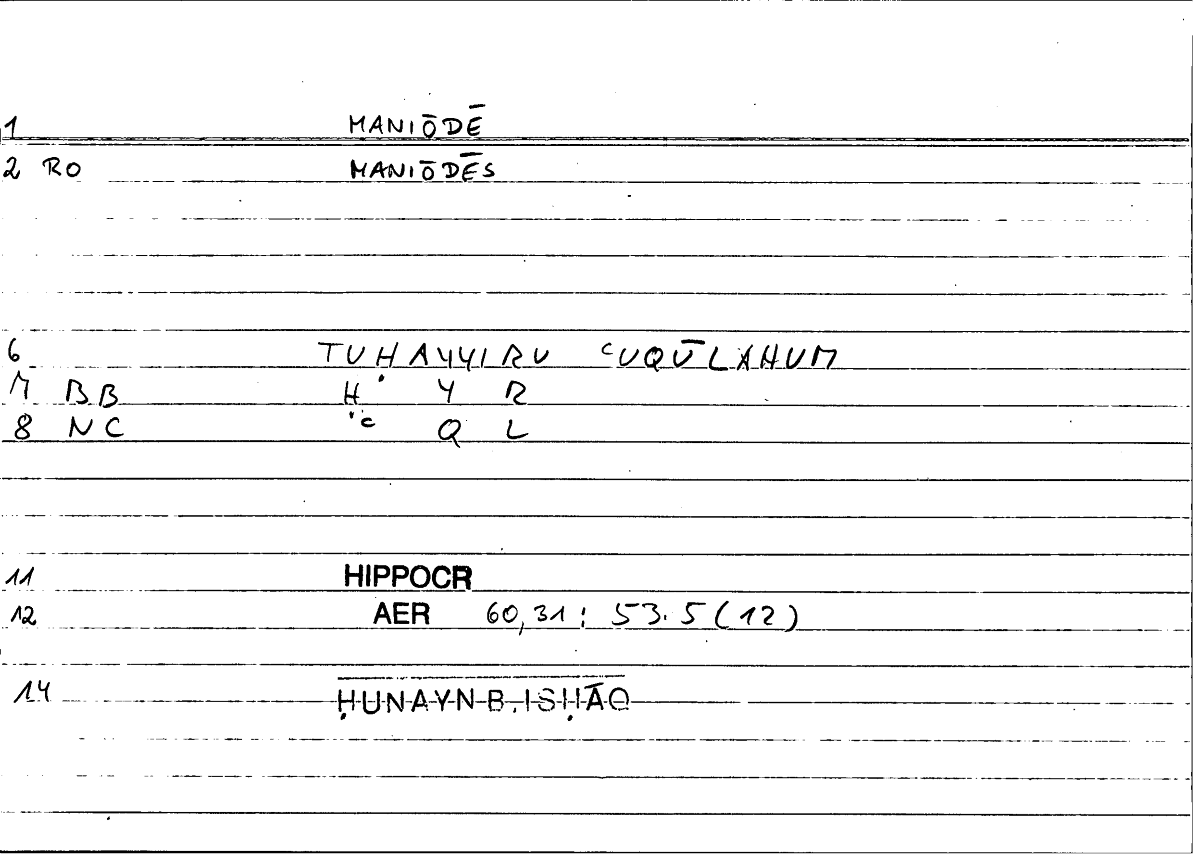 1 MANIŌDĒ
2 RO MANIŌDĒS
6 TUḤAYYIRU ʿUQŪLAHUM
7 BB Ḥ Y R
8 NC ʿ Q L
11 HIPPOCR
12 AER 60,31 : 53.5 (12)
14 ḤUNAYN B. ISḤĀQ